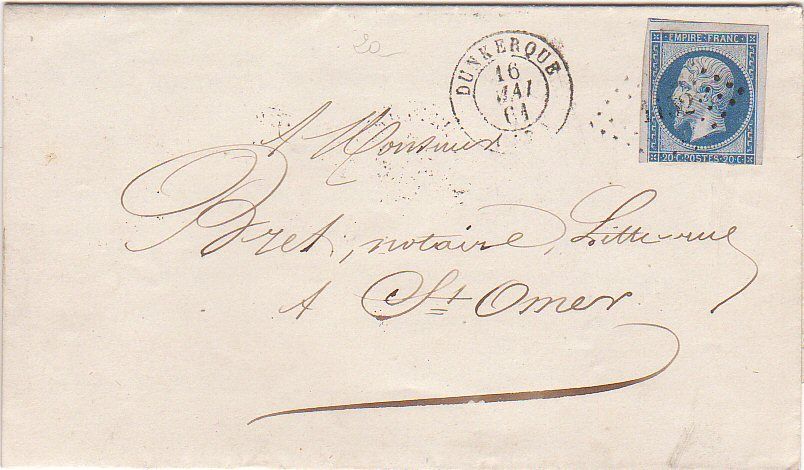 20
DUNKERQUE
16
MAI
61
EMPIRE FRANC
20 C POSTES 20 C
A Monsieur
Bret, notaire, Litte rue
A St Omer